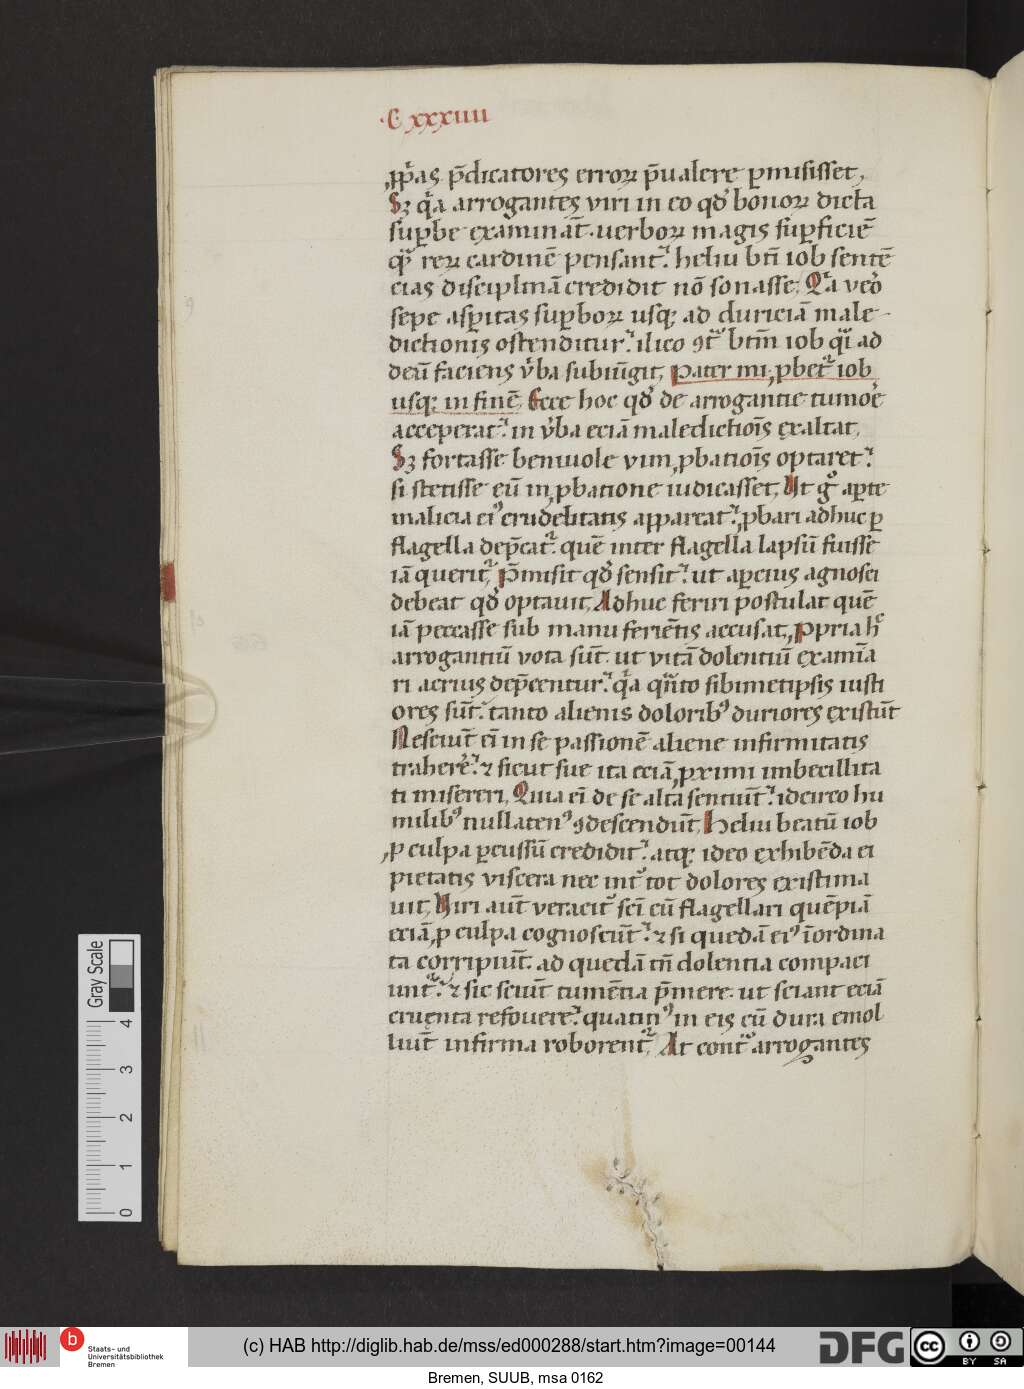 ·C xxxiiii
ꝓp̄as p̄dicatores erroꝝ p̄ualere ꝑmisisset,
Sꝫ q̄a arrogantes viri in eo qd̓ bonoꝝ dicta
suꝑbe examināt. uerboꝝ magis suꝑficiē
qͣ reꝝ cardinē pensant. heliu bt̄i iob sentē
cias disciplinā credidit nō sonasse. Q̄a vero
sepe asꝑitas suꝑboꝝ usqꝫ ad duriciā male-
dictionis ostenditur. ilico ꝯtͣ btm̄ iob qͥ ad
deū faciens v̓ba subiūgit. Pater mi, ꝓbet᷑ iob
usqꝫ in finē. Ecce hoc qd̓ de arrogantie tumor̄e
acceperat. in v̓ba eciā maledictiōis exaltat.
Sꝫ fortasse beniuole vim ꝓbatiōis optaret.
si stetisse eū in ꝓbatione iudicasset. Ut gͦ aꝑte
malicia eiꝰ crudelitatis appareat. ꝓbari adhuc ꝑ
flagella dep̄cat᷑. quē inter flagella lapsū fuisse
iā querit᷑. P̄misit qd̓ sensit. ut aꝑcius agnosci
debeat qd̓ optauit. Adhuc feriri postulat quē
iā peccasse sub manu feriētis accusat. Ꝓpria hͦ
arrogantiū vota sūt. ut vitā dolentiū examīa
ri acrius dep̄centur. q̄a qn̄to sibimetipsis iusti
ores sūt. tanto alienis doloribꝰ duriores existūt
Nesciūt ei̅ in se passionē aliene infirmitatis
traher̄e. ⁊ sicut sue ita eciā ꝓximi imbecillita
ti misereri. Quia ei̅ de se alta sentiūt. idcirco hu
milibꝰ nullatenꝰ ꝯdescendūt. Heliu beatū iob
ꝓ culpa ꝑcussū credidit. atqꝫ ideo exhibēda ei
pietatis viscera nec int̓ tot dolores existima
uit. Uiri aūt veracit̓ sc̄i cū flagellari quēpiā
eciā ꝓ culpa cognoscūt. ⁊ si quedā eiꝰ īordina
ta corripiūt. ad quedā tn̄ dolentia compaci
unt᷑. ⁊ sic sciūt tumētia p̄mere. ut sciant eciā
cruenta refouere. quatinꝰ in eis cū dura emol
liūt infirma roborent᷑. At contͣ arrogantes
Gray Scale
4
3
2
1
0
b
Staats- und
Universitätsbibliothek
Bremen
(c) HAB http://diglib.hab.de/mss/ed000288/start.htm?image=00144
DFG
cc BY SA
Bremen, SUUB, msa 0162